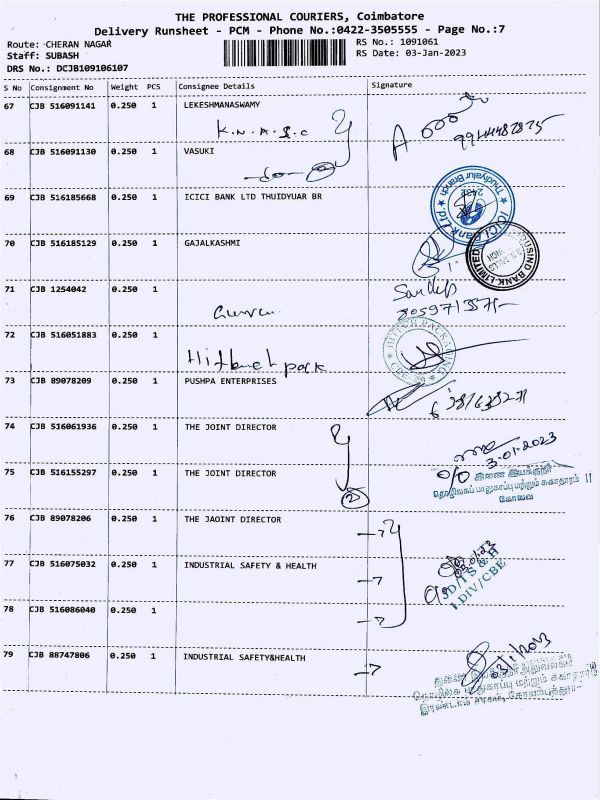 THE PROFESSIONAL COURIERS, Coimbatore
Delivery Runsheet - PCM - Phone No.:0422-3505555 - Page No.:7
Route: CHERAN NAGAR
Staff: SUBASH
DRS No.: DCJB109106107
RS No.: 1091061
RS Date: 03-Jan-2023
S No Consignment No Weight PCS Consignee Details Signature
67 CJB 516091141 0.250 1 LEKESHMANASWAMY
68 CJB 516091130 0.250 1 VASUKI
-do-
69 CJB 516185668 0.250 1 ICICI BANK LTD THUIDYUAR BR
ICICI Bank Ltd. Thudiyalur Branch
2432
70 CJB 516185129 0.250 1 GAJALKASHMI
71 CJB 1254042 0.250 1
Sandep
72 CJB 516051883 0.250 1
Hitech pack
73 CJB 89078209 0.250 1 PUSHPA ENTERPRISES
74 CJB 516061936 0.250 1 THE JOINT DIRECTOR
3.01.2023
75 CJB 516155297 0.250 1 THE JOINT DIRECTOR
2
இணை இயக்குநர்
தொழிலகப் பாதுகாப்பு மற்றும் சுகாதாரம் II
கோவை
76 CJB 89078206 0.250 1 THE JAOINT DIRECTOR
77 CJB 516075032 0.250 1 INDUSTRIAL SAFETY & HEALTH
JD/IS & H
I.DIV/CBE
78 CJB 516086040 0.250 1
79 CJB 88747806 0.250 1 INDUSTRIAL SAFETY&HEALTH
03/1/2023